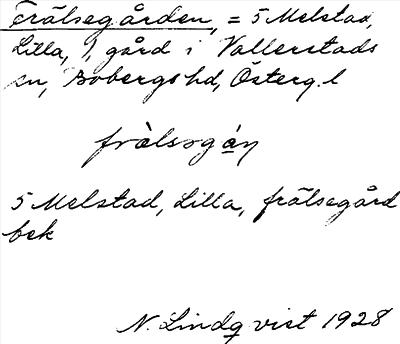 Frälsegården, = 5 Melstad,
Lilla, 1, gård i Vallerstads
sn, Bobergs hd, Österg. l
frälsgán
5 Melstad, Lilla, frälsegård
bek
N. Lindqvist 1928